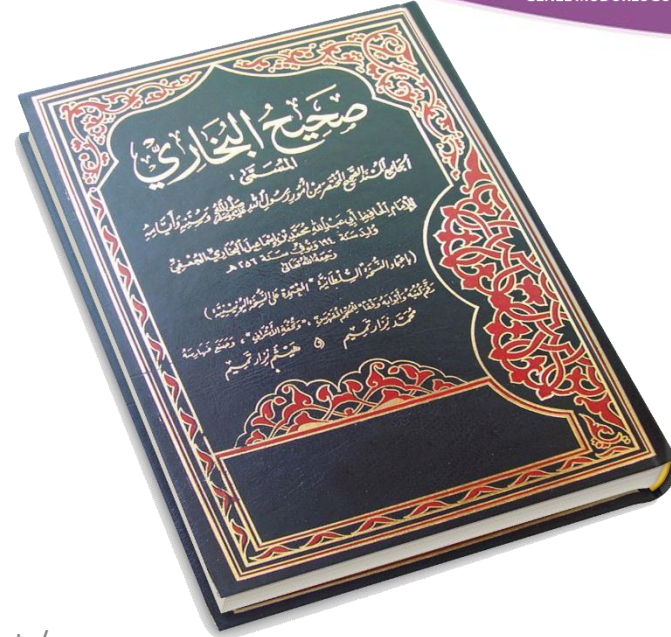 صَحِيحُ البُخَارِيّ
المُسَمَّى
الجامع المسند الصحيح المختصر من أمور رسول الله ﷺ وسننه وأيامه
للإمام الحافظ أبي عبد الله محمد بن إسماعيل البخاري الجعفي
ولد سنة ١٩٤ وتوفي سنة ٢٥٦ هـ
رحمه الله تعالى
(اعتماد النسخة السلطانية "المعتمدة على النسخة اليونينية")
رقم كتبه وأبوابه وفقا للمعجم المفهرس، وتحفة الأشراف، وصنع فهارسه
محمد نزار تميم و هيثم نزار تميم